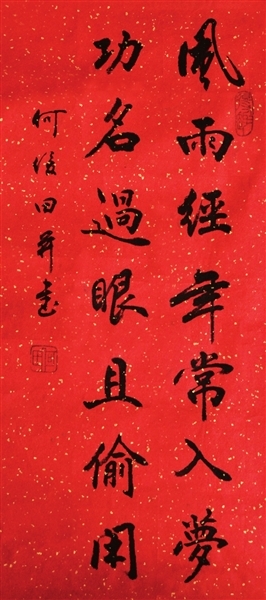 風雨經年常入夢
功名過眼且偷閑
何俊田并書